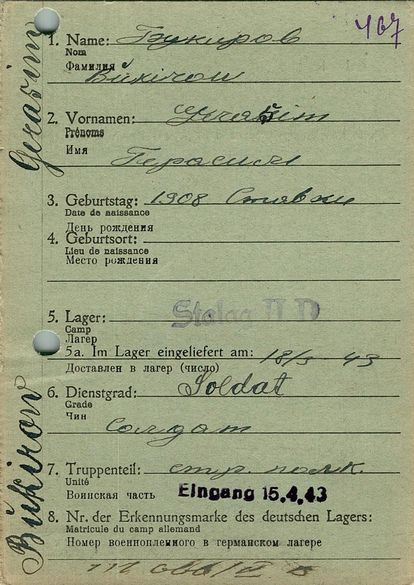 467
1. Name: Букиров
Nom
Фамилия
Bukirow
2. Vornamen: Gerasim
Prénoms
Имя
Герасим
3. Geburtstag: 1908
Date de naissance
День рождения
4. Geburtsort:
Lieu de naissance
Место рождения
5. Lager: Stalag II D
Camp
Лагер
5a. Im Lager eingeliefert am: 18/3-43
Доставлен в лагер (число)
6. Dienstgrad: Soldat
Grade
Чин
Солдат
7. Truppenteil: стр. полк.
Unité
Воинская часть Eingang 15.4.43
8. Nr. der Erkennungsmarke des deutschen Lagers:
Matricule du camp allemand
Номер военнопленного в германском лагере
Gerasim
Bŭkirow